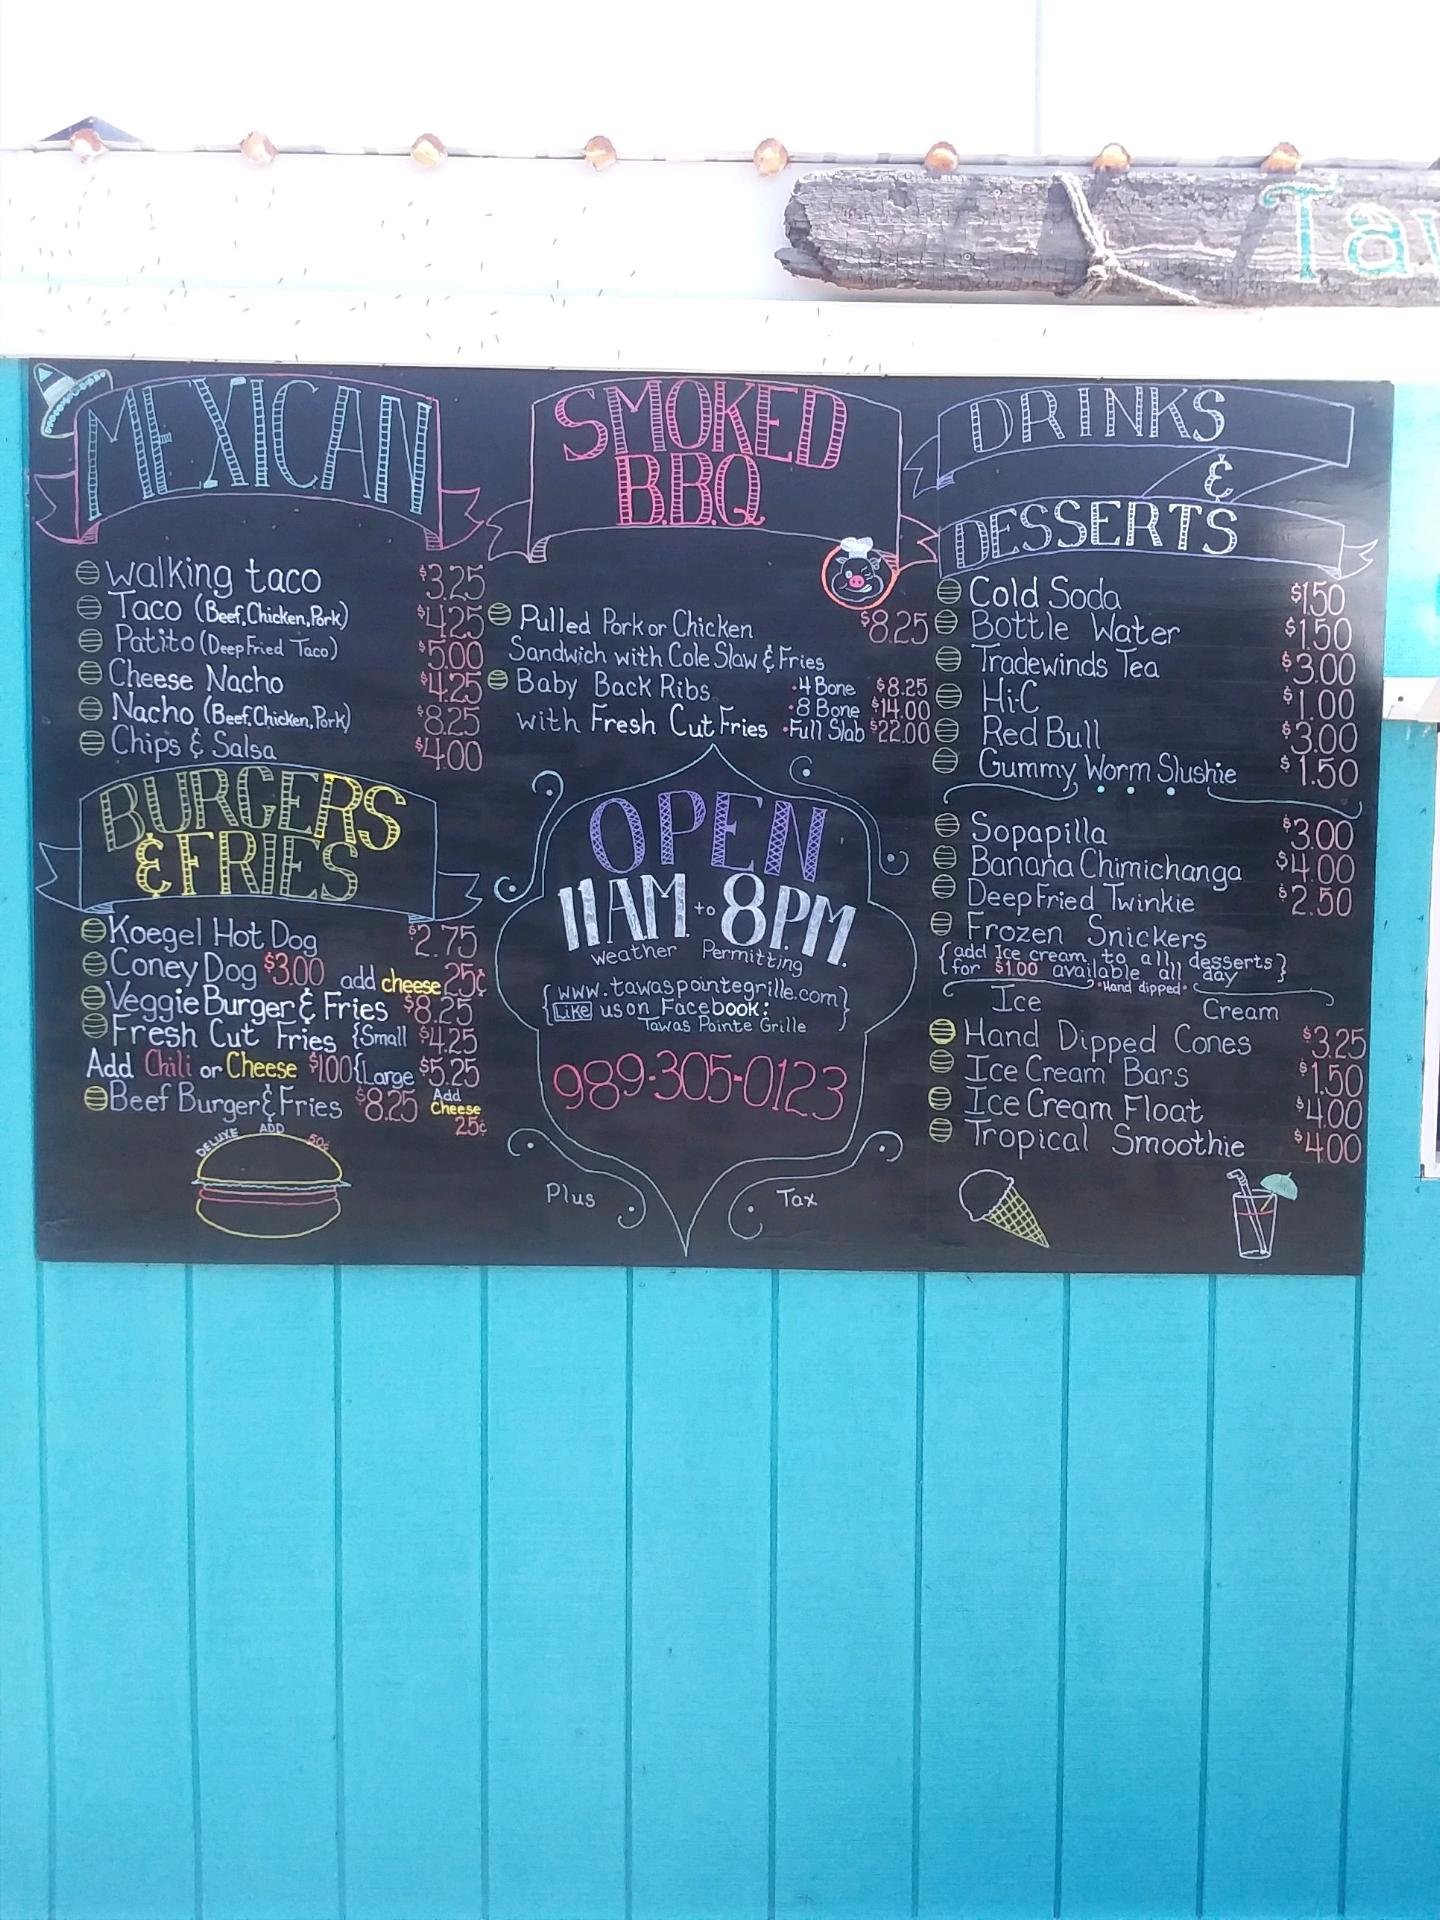 Ta
MEXICAN
walking taco $3.25
Taco (Beef, Chicken, Pork) $4.25
Patito (Deep Fried Taco) $5.00
Cheese Nacho $4.25
Nacho (Beef, Chicken, Pork) $8.25
Chips & Salsa $4.00
BURGERS
& FRIES
Koegel Hot Dog $2.75
Coney Dog $3.00 add cheese 25¢
Veggie Burger & Fries $8.25
Fresh Cut Fries {Small $4.25
Add Chili or Cheese $1.00 {Large $5.25
Beef Burger & Fries $8.25 Add
Cheese
25¢
DELUXE ADD 50¢
SMOKED
B.B.Q
Pulled Pork or Chicken $8.25
Sandwich with Cole Slaw & Fries
Baby Back Ribs •4 Bone $8.25
•8 Bone $14.00
with Fresh Cut Fries •Full Slab $22.00
OPEN
11AM to 8PM.
weather Permitting
{www.tawaspointegrille.com}
Like us on Facebook:
Tawas Pointe Grille
989-305-0123
Plus Tax
DRINKS
&
DESSERTS
Cold Soda $1.50
Bottle Water $1.50
Tradewinds Tea $3.00
Hi-C $1.00
Red Bull $3.00
Gummy Worm Slushie $1.50
Sopapilla $3.00
Banana Chimichanga $4.00
Deep Fried Twinkie $2.50
Frozen Snickers
{add Ice cream to all desserts}
for $1.00 available all day
•Hand dipped•
Ice Cream
Hand Dipped Cones $3.25
Ice Cream Bars $1.50
Ice Cream Float $4.00
Tropical Smoothie $4.00